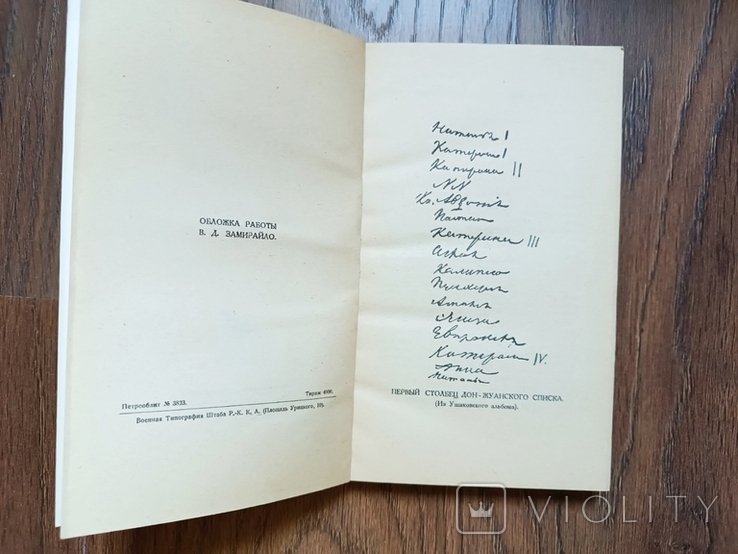 ОБЛОЖКА РАБОТЫ
В. Д. ЗАМИРАЙЛО.
Петрооблит № 3833. Тираж 4000.
Военная Типография Штаба Р.-К. К. А. (Площадь Урицкого, 10).
Катерина I
Катерина II
NN
Кн. Авдотия
Катерина III
Аглая
Калипсо
Пулхерия
Амалия
Элиза
Евпраксея
Катерина IV.
Анна
Наталья
ПЕРВЫЙ СТОЛБЕЦ ДОН-ЖУАНСКОГО СПИСКА.
(Из Ушаковского альбома).
VIOLITY